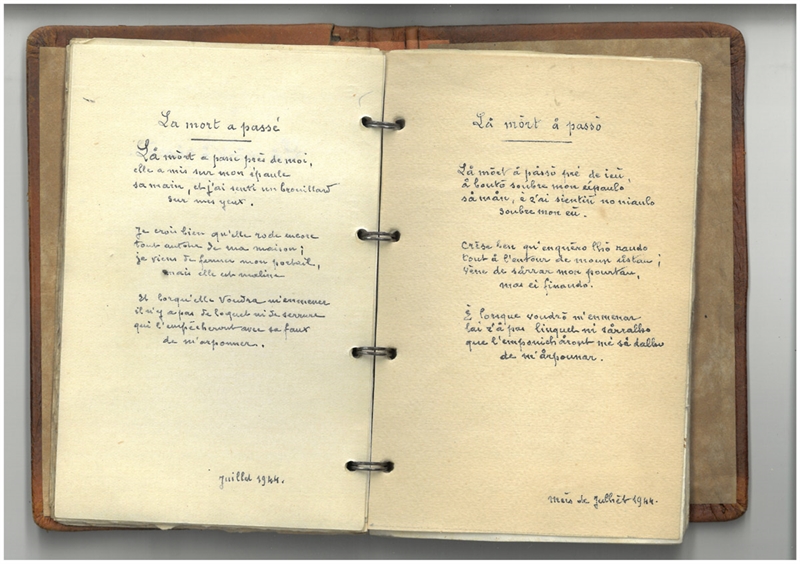 La mort a passé
Lå mort a passé près de moi,
elle a mis sur mon épaule
sa main, et j'ai senti un brouillard
sur mes yeux.
Je crois bien qu'elle rode encore
tout autour de ma maison ;
je viens de fermer mon portail,
mais elle est maline
Et lorqu'elle voudra m'emmener
il n'y a pas de loquet ni de serrure
qui l'empêcheront avec sa faux
de m'arponner.
Juillet 1944.
Lå mört å passö
Lå mört å påssö pré de ieü,
å boutö soubre mon éipaulo
så mån, è z'ai sientiü no niaulo
soubre mon eü.
Crèse ben qu'enquèro lhö raudo
tout à l'entour de moun östau ;
Vène de sårrar mon pourtau,
mas ei finaudo.
È lorsque voudrö m'enmenar
lai z'å pas linquet ni sårralho
que l'empouichåront mé så dalho
de m'årpounar.
Mois de Julhèt 1944.